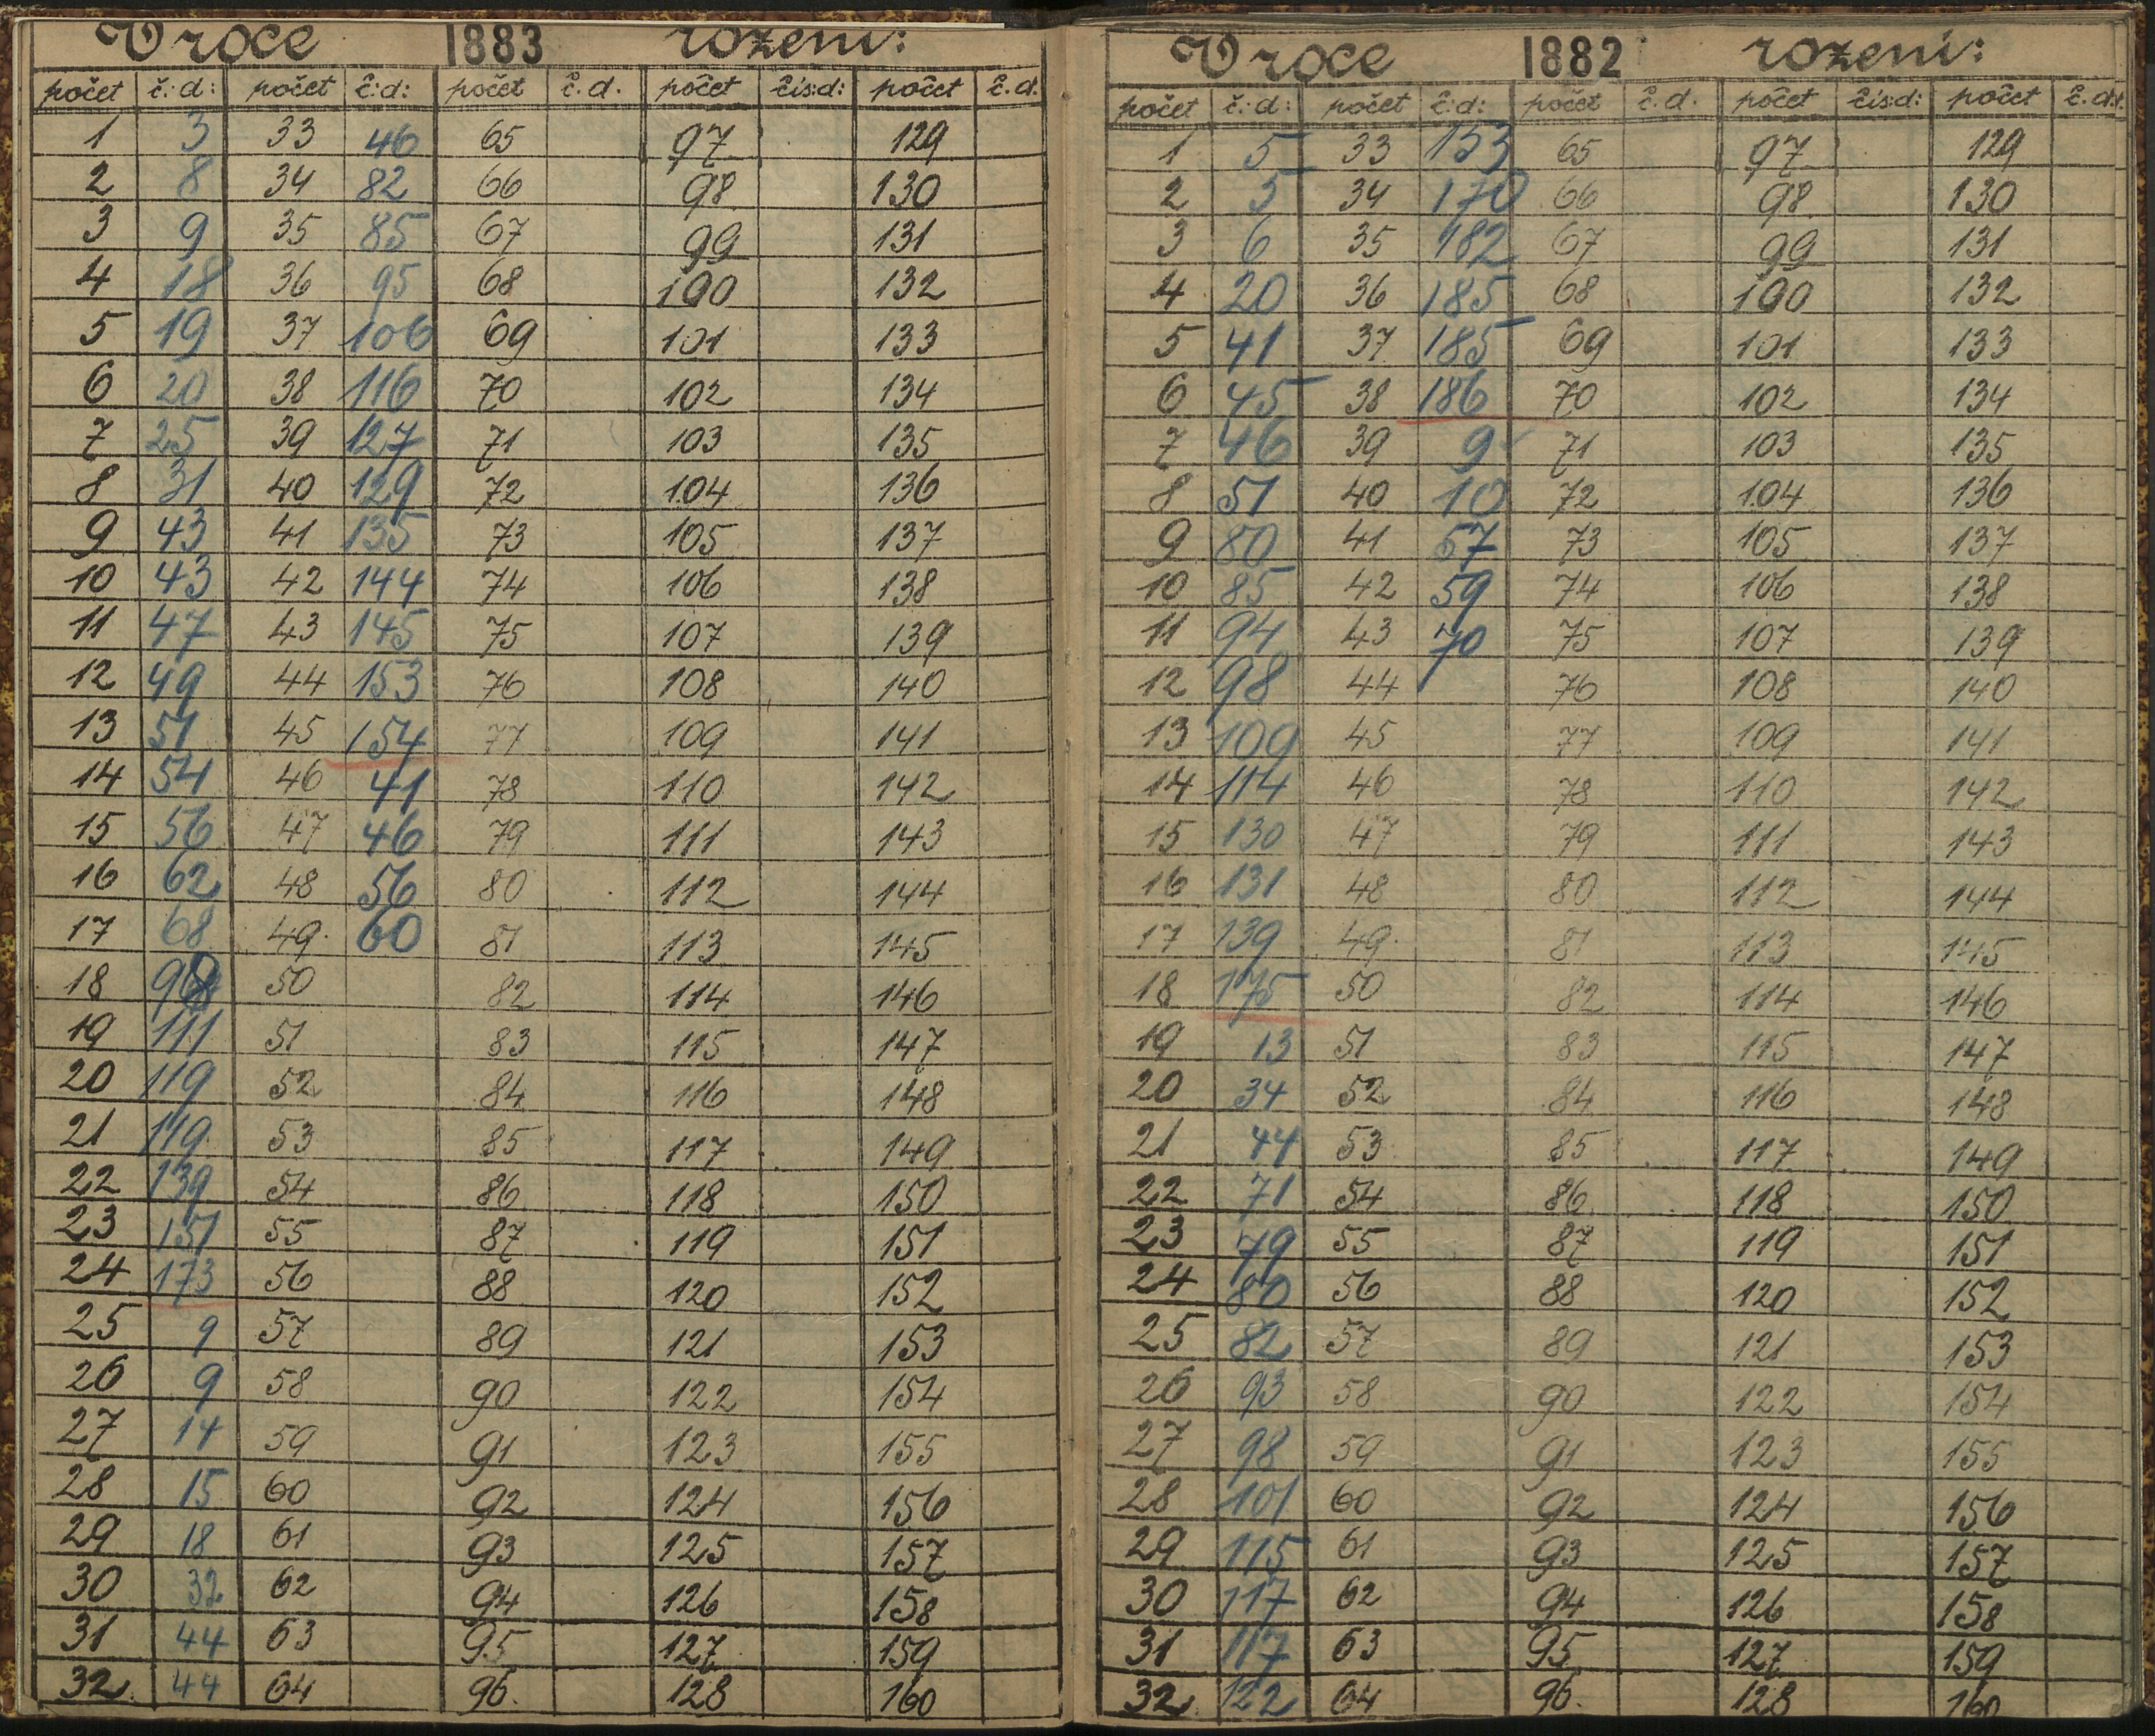 V roce 1883 rozeni:
počet č.:d: počet č.:d: počet č.d. počet čís:d: počet č.d.
1 3 33 46 65 97 129
2 8 34 82 66 98 130
3 9 35 85 67 99 131
4 18 36 95 68 100 132
5 19 37 106 69 101 133
6 20 38 116 70 102 134
7 25 39 127 71 103 135
8 31 40 129 72 104 136
9 43 41 135 73 105 137
10 43 42 144 74 106 138
11 47 43 145 75 107 139
12 49 44 153 76 108 140
13 51 45 154 77 109 141
14 54 46 41 78 110 142
15 56 47 46 79 111 143
16 62 48 56 80 112 144
17 68 49. 60 81 113 145
18 50 82 114 146
19 111 51 83 115 147
20 119 52 84 116 148
21 119 53 85 117 149
22 139 54 86 118 150
23 151 55 87 119 151
24 173 56 88 120 152
25 9 57 89 121 153
26 9 58 90 122 154
27 14 59 91 123 155
28 15 60 92 124 156
29 18 61 93 125 157
30 32 62 94 126 158
31 44 63 95 127 159
32. 44 64 96. 128 160
V roce 1882 rozeni:
počet č.:d: počet č.:d: počet č.d. počet čís:d: počet č.d.
1 5 33 153 65 97 129
2 5 34 170 66 98 130
3 6 35 182 67 99 131
4 20 36 185 68 100 132
5 41 37 185 69 101 133
6 45 38 186 70 102 134
7 46 39 9 71 103 135
8 51 40 10 72 104 136
9 80 41 57 73 105 137
10 85 42 59 74 106 138
11 94 43 70 75 107 139
12 98 44 76 108 140
13 109 45 77 109 141
14 114 46 78 110 142
15 130 47 79 111 143
16 131 48 80 112 144
17 139 49. 81 113 145
18 175 50 82 114 146
19 13 51 83 115 147
20 34 52 84 116 148
21 44 53 85 117 149
22 71 54 86 118 150
23 79 55 87 119 151
24 80 56 88 120 152
25 82 57 89 121 153
26 93 58 90 122 154
27 98 59 91 123 155
28 101 60 92 124 156
29 115 61 93 125 157
30 117 62 94 126 158
31 117 63 95 127 159
32. 122 64 96. 128 160